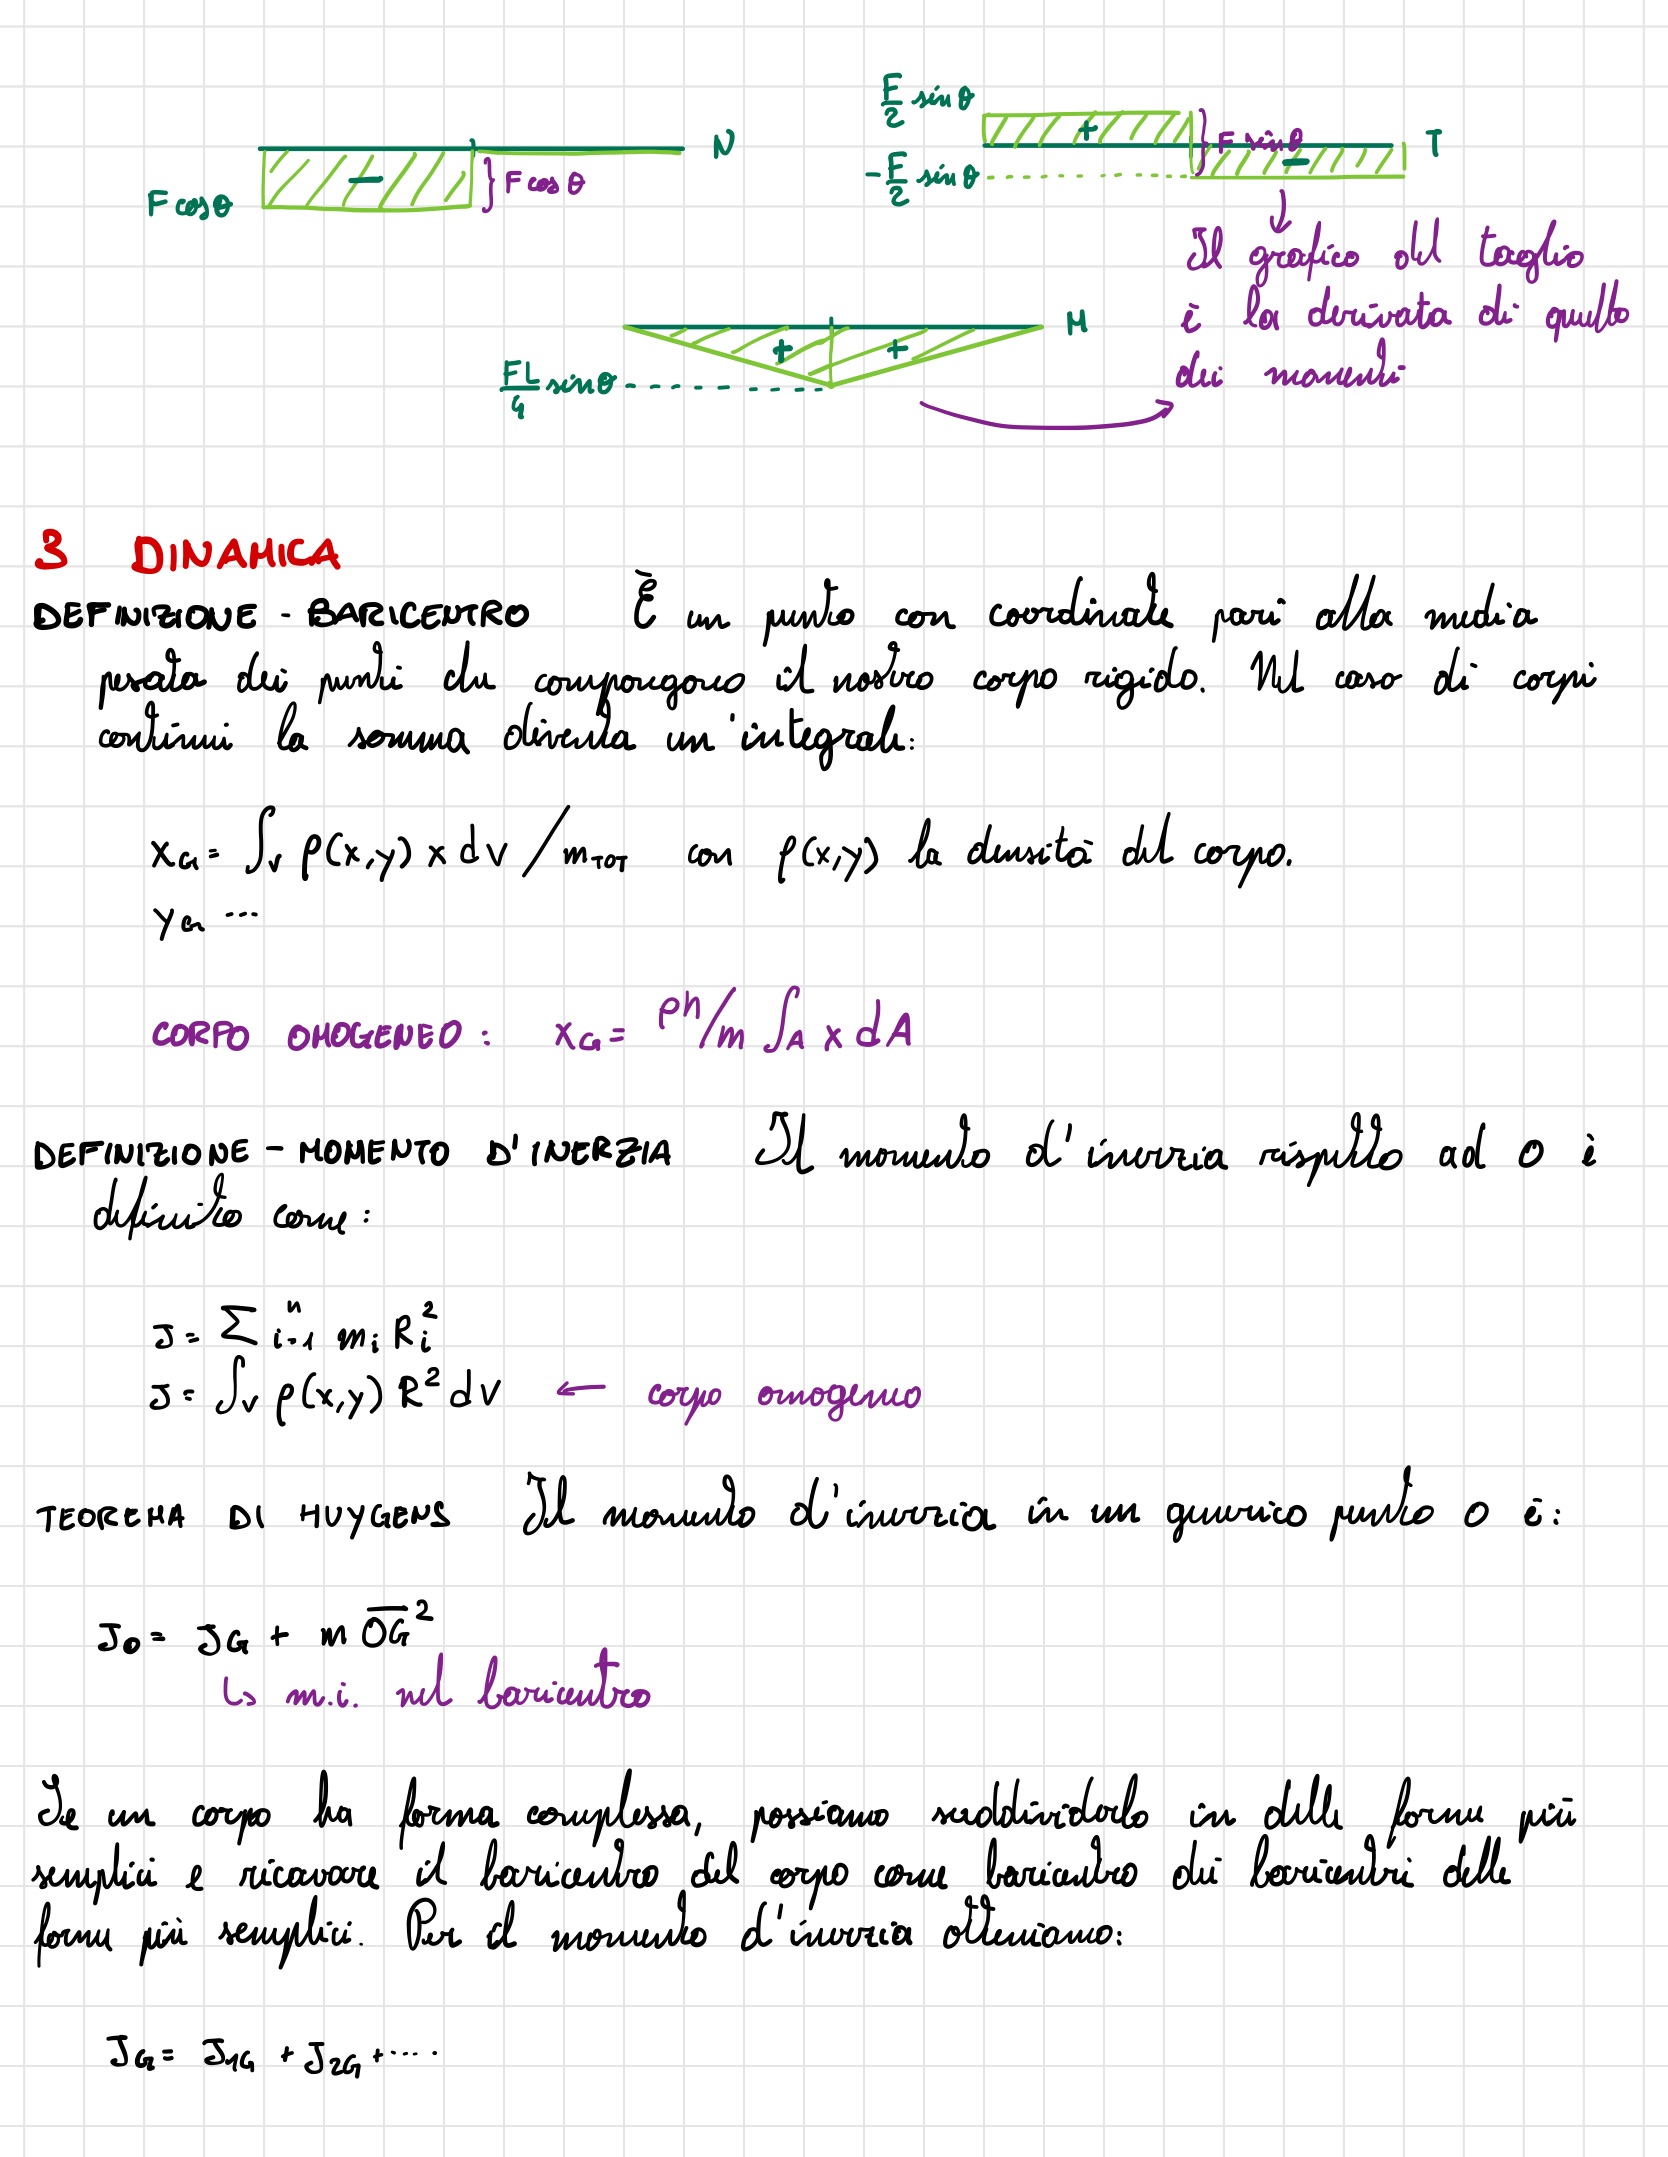 N
F cos θ
} F cos θ
F/2 sin θ
-F/2 sin θ
} F sin θ
T
Il grafico del taglio
è la derivata di quello
dei momenti
M
FL/4 sin θ
3 DINAMICA
DEFINIZIONE - BARICENTRO È un punto con coordinate pari alla media
pesata dei punti che compongono il nostro corpo rigido. Nel caso di corpi
continui la somma diventa un'integrale:
x_G = ∫_V ρ(x,y) x dV / m_TOT con ρ(x,y) la densità del corpo.
y_G ...
CORPO OMOGENEO: x_G = ρh/m ∫_A x dA
DEFINIZIONE - MOMENTO D'INERZIA Il momento d'inerzia rispetto ad O è
definito come:
J = Σ_{i=1}^n m_i R_i^2
J = ∫_V ρ(x,y) R^2 dV ← corpo omogeneo
TEOREMA DI HUYGENS Il momento d'inerzia in un generico punto O è:
J_O = J_G + m \overline{OG}^2
↳ m.i. nel baricentro
Se un corpo ha forma complessa, possiamo suddividerlo in delle forme più
semplici e ricavare il baricentro del corpo come baricentro dei baricentri delle
forme più semplici. Per il momento d'inerzia otteniamo:
J_G = J_1G + J_2G + ....